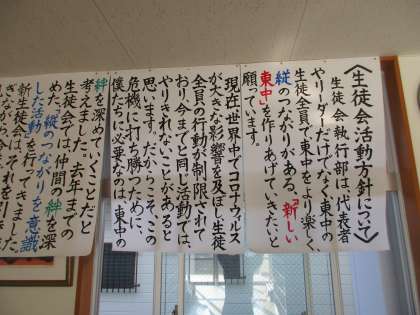 〈生徒会活動方針について〉
生徒会執行部は、代表者
やリーダーだけでなく、東中の
生徒全員で東中をより楽しく、
縦のつながりがある、「新しい
東中」を作りあげていきたいと
願っています。
現在、世界中でコロナウィルス
が大きな影響を及ぼし、生徒
全員の行動が制限されて
おり、今までと同じ活動では、
やりきれないことがあると
思います。だからこそ、この
危機に打ち勝つために、
僕たちに必要なのは、東中の
絆を深めていくことだと
考えました。去年までの
生徒会では、仲間の絆を深
めた、「縦のつながりを意識
した活動」を行ってきました。
新生徒会は、それを引き